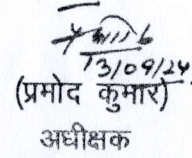 13/09/24
(प्रमोद कुमार)
अधीक्षक